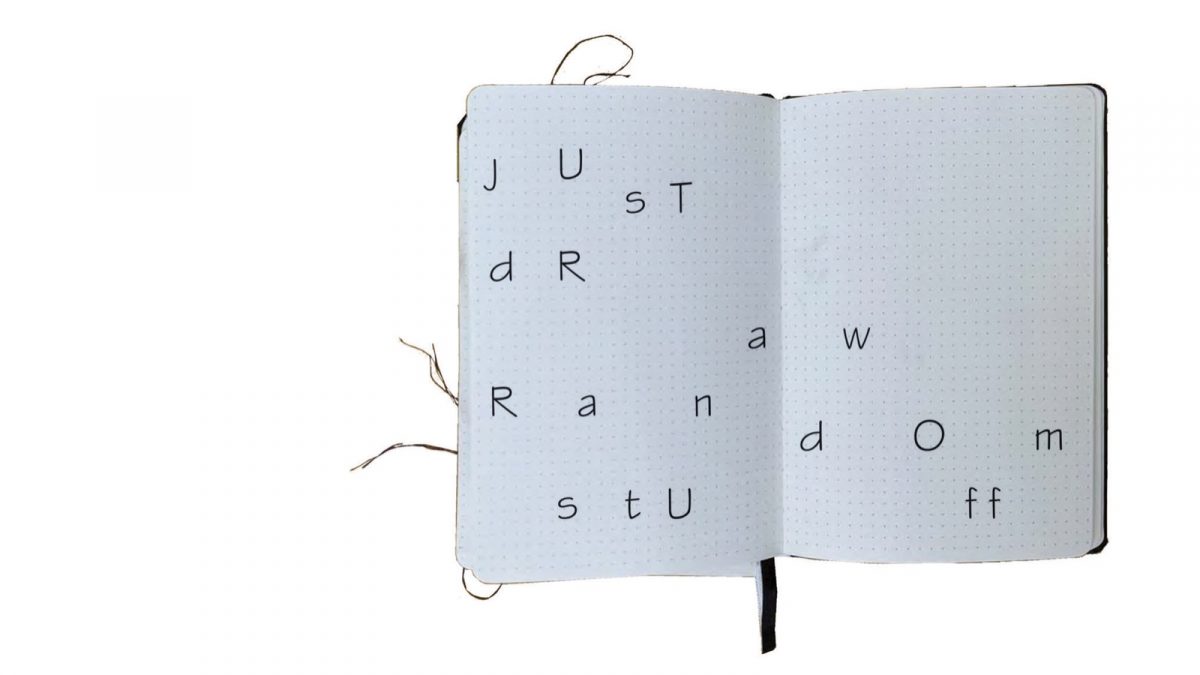 J U sT
dR aw
Ran dOm
stU ff